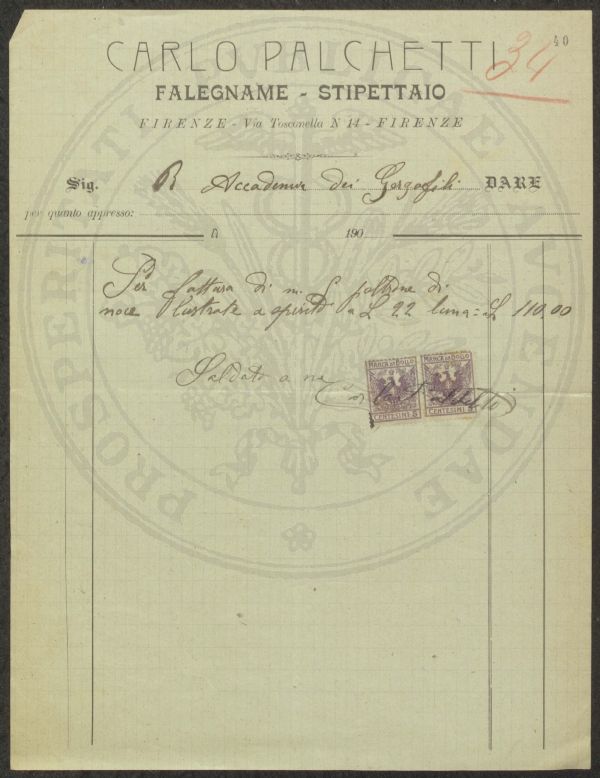 CARLO PALCHETTI
34
40
FALEGNAME - STIPETTAIO
FIRENZE - Via Toscanella N 14 - FIRENZE
Sig. R Accademia dei Gorgofili DARE
per quanto appresso:
li 190
Per fattura di n. 5 poltrone di
noce lustrate a spirito a L 22 luna = L 110,00
Saldato
MARCA DA BOLLO
CENTESIMI 5
MARCA DA BOLLO
CENTESIMI 5
PROSPERITATI PUBLICAE AUGENDAE